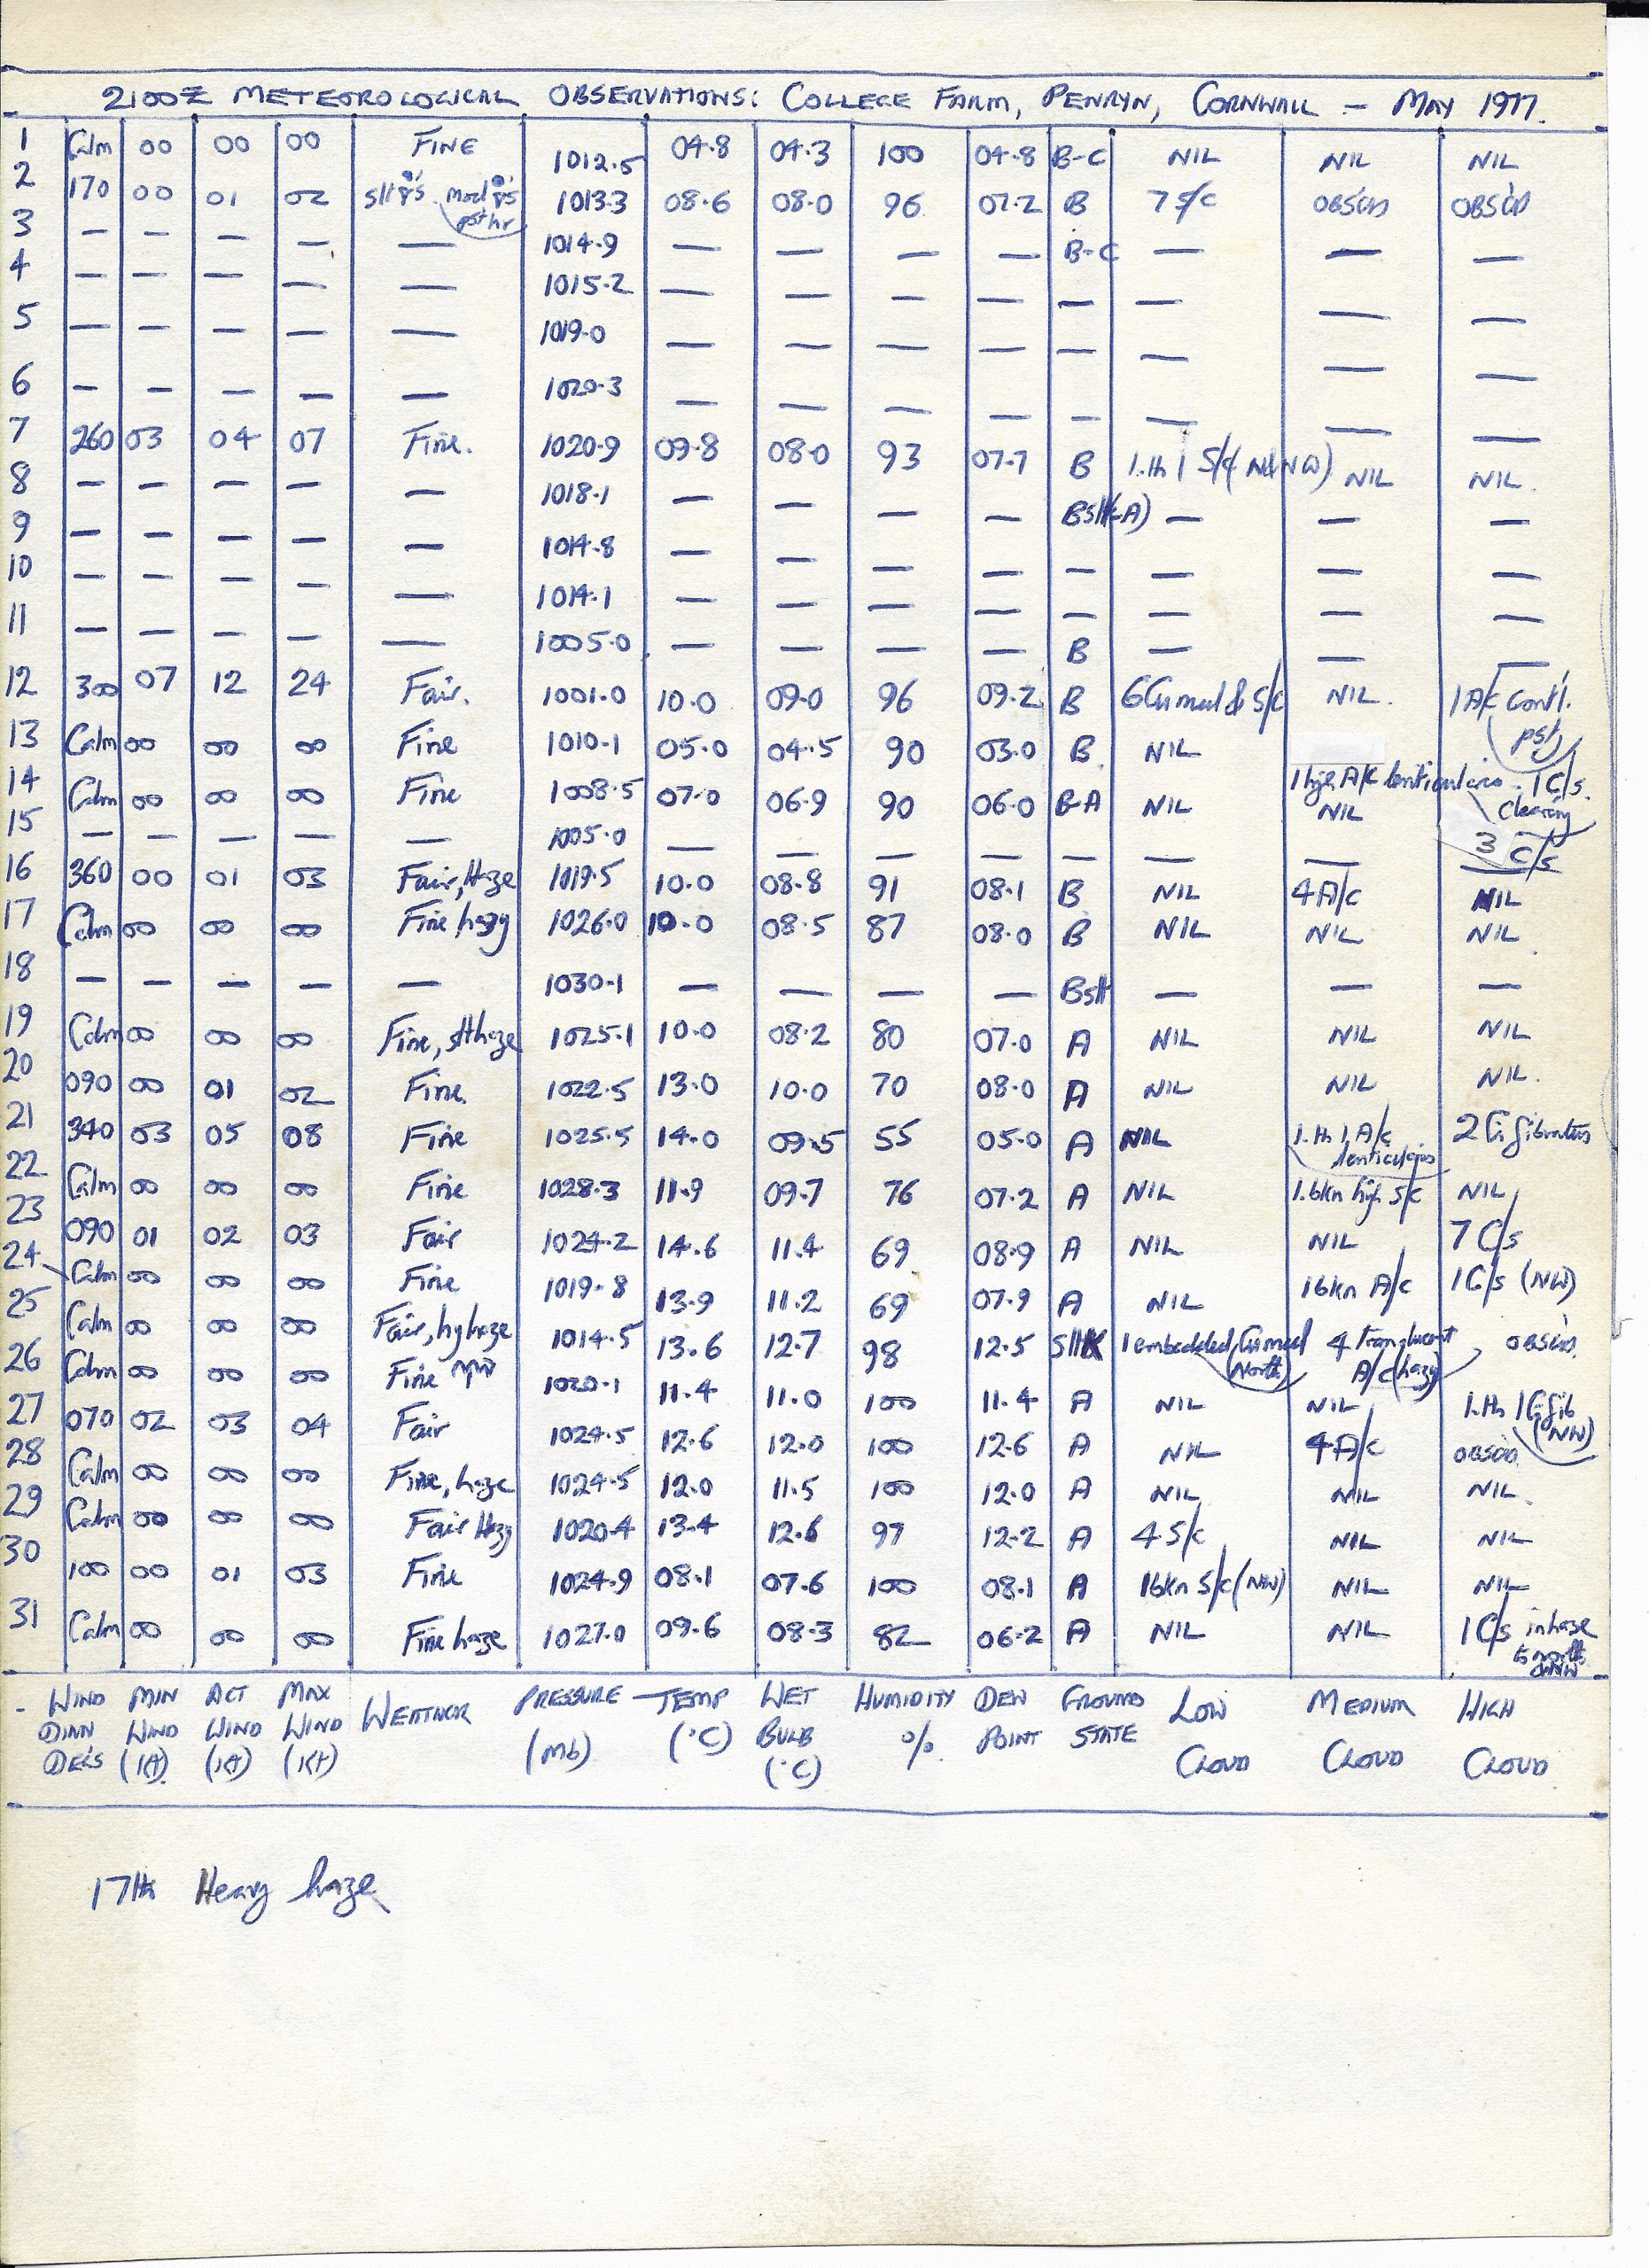 2100Z METEOROLOGICAL OBSERVATIONS: COLLEGE FARM, PENRYN, CORNWALL - MAY 1977.
1 Calm 00 00 00 FINE 1012.5 04.8 04.3 100 04.8 B-C NIL NIL NIL
2 170 00 01 02 slt mod pst hr 1013.3 08.6 08.0 96 07.2 B 7 S/C OBSCD OBSCD
3 — — — — — 1014.9 — — — — B-C — — —
4 — — — — — 1015.2 — — — — — — — —
5 — — — — — 1019.0 — — — — — — — —
6 — — — — — 1020.3 — — — — — — — —
7 260 03 04 07 Fine. 1020.9 09.8 08.0 93 07.7 B 1.th 1 S/C NIL NIL.
8 — — — — — 1018.1 — — — — Bslt(-A) — — —
9 — — — — — 1014.8 — — — — — — — —
10 — — — — — 1014.1 — — — — — — — —
11 — — — — — 1005.0 — — — — B — — —
12 300 07 12 24 Fair. 1001.0 10.0 09.0 96 09.2 B 6 Cu med & S/C NIL. 1 A/C cont'l. pst
13 Calm 00 00 00 Fine 1010.1 05.0 04.5 90 03.0 B NIL 1 high A/C lenticularis 1 C/s. clearing
14 Calm 00 00 00 Fine 1008.5 07.0 06.9 90 06.0 B-A NIL NIL 3 C/s
15 — — — — — 1005.0 — — — — — — —
16 360 00 01 03 Fair, Haze 1019.5 10.0 08.8 91 08.1 B NIL 4 A/C NIL
17 Calm 00 00 00 Fine hazy 1026.0 10.0 08.5 87 08.0 B NIL NIL NIL
18 — — — — — 1030.1 — — — — Bslt — — —
19 Calm 00 00 00 Fine, slt haze 1025.1 10.0 08.2 80 07.0 A NIL NIL NIL
20 090 00 01 02 Fine 1022.5 13.0 10.0 70 08.0 A NIL NIL NIL.
21 340 03 05 08 Fine 1025.5 14.0 09.5 55 05.0 A NIL 1.th 1 A/C lenticularis 2 Ci fibratus
22 Calm 00 00 00 Fine 1028.3 11.9 09.7 76 07.2 A NIL 1.6kn high S/C NIL
23 090 01 02 03 Fair 1024.2 14.6 11.4 69 08.9 A NIL NIL 7 C/s
24 Calm 00 00 00 Fine 1019.8 13.9 11.2 69 07.9 A NIL 1 bkn A/C 1 C/s (NW)
25 Calm 00 00 00 Fair, hy haze 1014.5 13.6 12.7 98 12.5 slt 1 embedded Cu med (North) 4 translucent A/C (hazy) OBSCD.
26 Calm 00 00 00 Fine 1020.1 11.4 11.0 100 11.4 A NIL NIL 1.th 1 Ci fib (NW)
27 070 02 03 04 Fair 1024.5 12.6 12.0 100 12.6 A NIL 4 A/C OBSCD
28 Calm 00 00 00 Fine, haze 1024.5 12.0 11.5 100 12.0 A NIL NIL NIL.
29 Calm 00 00 00 Fair Hazy 1020.4 13.4 12.6 97 12.2 A 4 S/C NIL NIL
30 100 00 01 03 Fine 1024.9 08.1 07.6 100 08.1 A 1 bkn S/C (NW) NIL NIL
31 Calm 00 00 00 Fine haze 1027.0 09.6 08.3 82 06.2 A NIL NIL 1 C/s in haze to north
WIND MIN ACT MAX WEATHER PRESSURE TEMP WET HUMIDITY DEW GROUND LOW MEDIUM HIGH
DIRN WIND WIND WIND (Mb) (°C) BULB % POINT STATE CLOUD CLOUD CLOUD
DEG'S (Kt) (Kt) (Kt) (°C)
17th Heavy haze